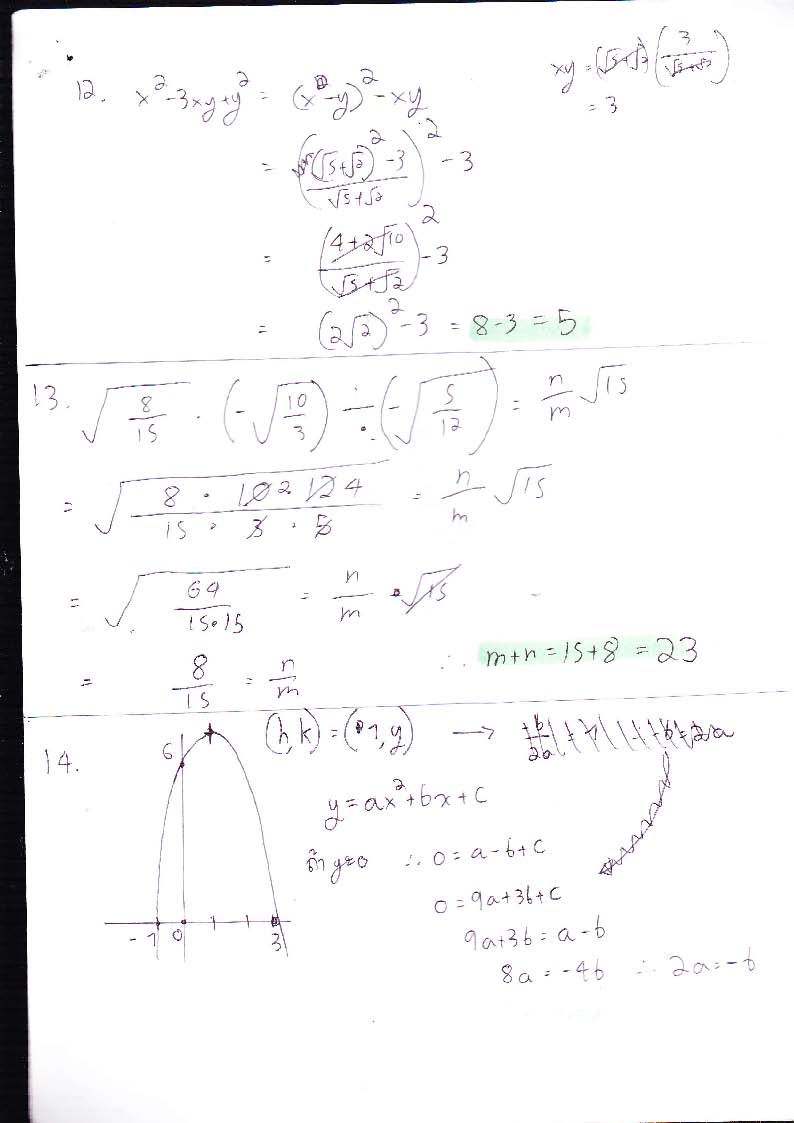 12. x² - 3xy + y² = (x - y)² - xy
xy = (√5+√2) (3/(√5+√2))
= 3
= (((√5+√2)² - 3)/(√5+√2))² - 3
= ((4+2√10)/(√5+√2))² - 3
= (2√2)² - 3 = 8-3 = 5
13. √(8/15) · (-√(10/3)) ÷ (-√(5/12)) = n/m √15
= √((8 · 10 2 12 4)/(15 · 3 · 5)) = n/m √15
= √(64/(15·15)) = n/m · √15
= 8/15 = n/m ∴ m+n = 15+8 = 23
14. 6 (h,k) = (1,y) →
y = ax² + bx + c
ถ้า y=0 ∴ 0 = a-b+c
0 = 9a+3b+c
-1 0 3
9a+3b = a-b
8a = -4b ∴ 2a = -b